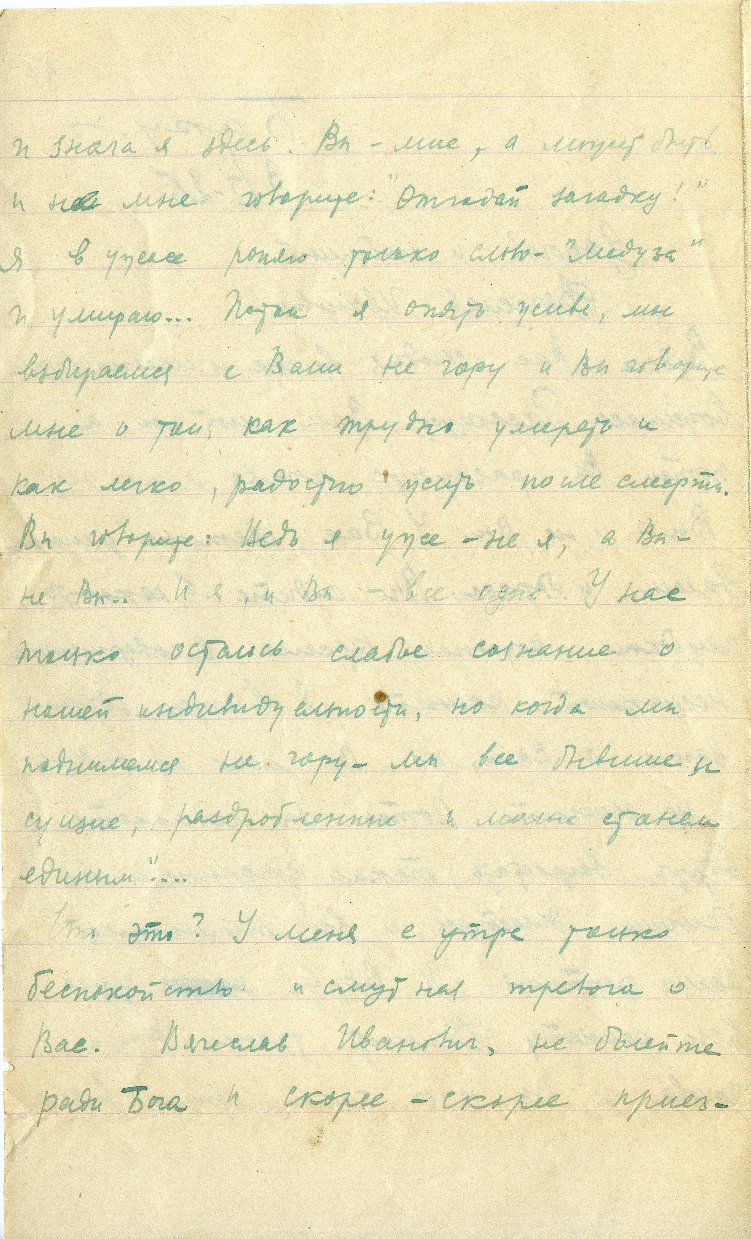 и знала я здесь. Вы – мне, а может быть
и не мне говорите: "Отгадай загадку!"
Я в ужасе роняю только слово – "Медуза"
и умираю... Потом я опять живе, мы
взбираемся с Вами на гору и Вы говорите
мне о том, как трудно умереть и
как легко, радостно жить после смерти.
Вы говорите: Ведь я уже – не я, а Вы –
не Вы.. И я, и Вы – все одно. У нас
только осталось слабое сознание о
нашей индивидуальности, но когда мы
поднимемся на гору – мы все бывшие и
сущие, раздробленные и станем
единым"...
Что это? У меня с утра только
беспокойство и смутная тревога о
Вас. Вячеслав Иванович, не болейте
ради Бога и скорее – скорее приез-